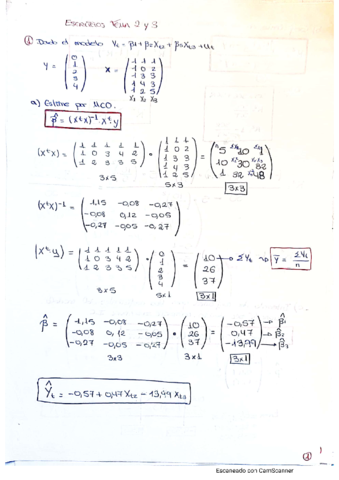 Ejercicios Tema 2 y 3
① Dado el modelo Yt = β1 + β2Xt2 + β3Xt3 + ut
Y = (0 1 2 3 4) X = (1 1 1 / 1 0 2 / 1 3 3 / 1 4 3 / 1 2 5)
X1 X2 X3
a) Estime por MCO.
β̂ = (XtX)-1 Xt y
(XtX) = (1 1 1 1 1 / 1 0 3 4 2 / 1 2 3 3 5) • (1 1 1 / 1 0 2 / 1 3 3 / 1 4 3 / 1 2 5) =
3x5 5x3 3x3
(XtX)-1 = (1,15 -0,08 -0,27 / -0,08 0,12 -0,05 / -0,27 -0,05 -0,27)
(Xt y) = (1 1 1 1 1 / 1 0 3 4 2 / 1 2 3 3 5) • (0 1 2 3 4) = (10 26 37) → ΣYt → Ȳ = ΣYt / n
3x5 5x1 3x1
β̂ = (1,15 -0,08 -0,27 / -0,08 0,12 -0,05 / -0,27 -0,05 -0,27) • (10 26 37) = (-0,57 0,47 -13,99) → β̂1 → β̂2 → β̂3
3x3 3x1 3x1
Ŷt = -0,57 + 0,47 Xt2 - 13,99 Xt3
①
Escaneado con CamScanner